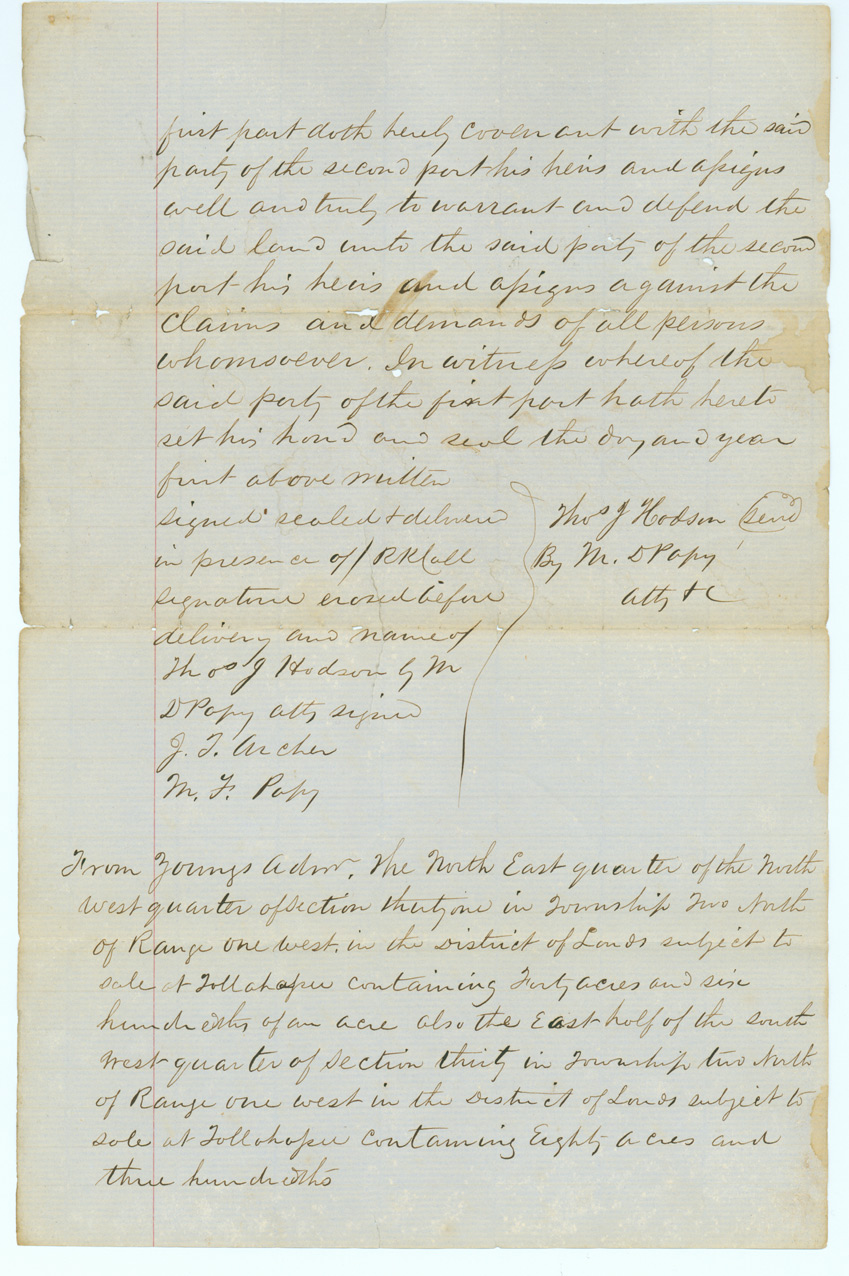 first part doth herely covenant with the said
party of the second part his heirs and assigns
well and truly to warrant and defend the
said land unto the said party of the second
part his heirs and assigns against the
claims and demands of all persons
whomsoever. In witness whereof the
said party of the first part hath hereto
set his hand and seal the day and year
first above written
signed sealed & delivered
in presence of / RKCall
signature erased before
delivery and name of
Thos J Hodson by M
D Papy atty signed
J. T. Archer
M. F. Papy
Thos J Hodson (seal)
By M. D Papy
atty &c
From Youngs Admr. The North East quarter of the North
West quarter of section thirty one in Township Two North
of Range one west in the District of Lands subject to
sale at Tallahassee containing Forty acres and six
hundredths of an acre also the East half of the south
West quarter of section thirty in Township two North
of Range one west in the District of Lands subject to
sale at Tallahassee containing Eighty acres and
three hundredths